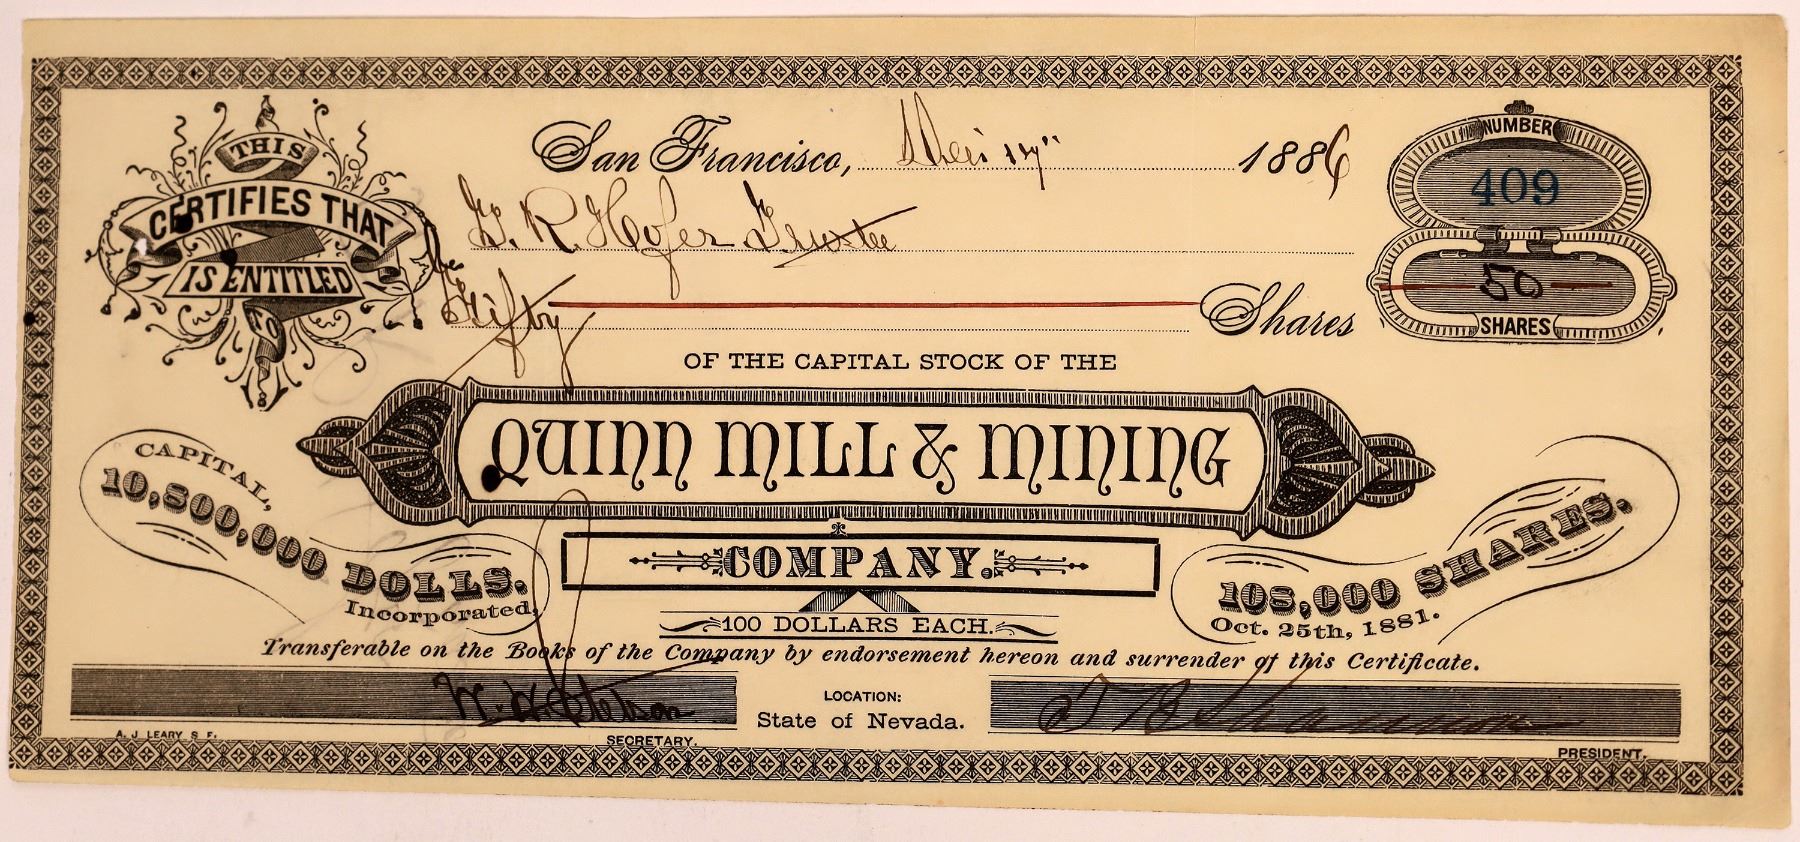 THIS
CERTIFIES THAT
IS ENTITLED
TO
San Francisco, Dec 17" 1886
NUMBER
409
Hofer Trustee
Fifty Shares
50
SHARES
OF THE CAPITAL STOCK OF THE
QUINN MILL & MINING
COMPANY.
CAPITAL,
10,800,000 DOLLS.
Incorporated,
108,000 SHARES.
Oct. 25th, 1881.
100 DOLLARS EACH.
Transferable on the Books of the Company by endorsement hereon and surrender of this Certificate.
W. H. Stetson
LOCATION:
State of Nevada.
Shannon
A. J LEARY S F.
SECRETARY.
PRESIDENT.